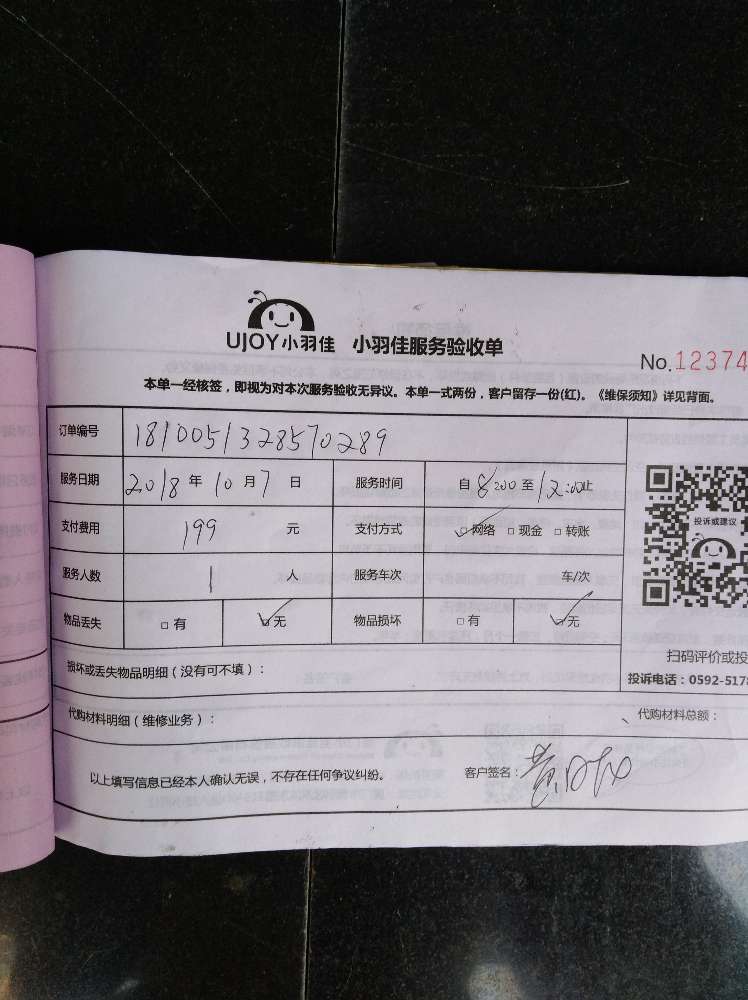 UJOY小羽佳 小羽佳服务验收单
No.12374
本单一经核签，即视为对本次服务验收无异议。本单一式两份，客户留存一份(红)。《维保须知》详见背面。
订单编号 1810051328570289
服务日期 2018 年 10 月 7 日 服务时间 自 8:00 至 12:00止
支付费用 199 元 支付方式 ☑网络 □现金 □转账
服务人数 1 人 服务车次 车/次
物品丢失 □有 ☑无 物品损坏 □有 ☑无
投诉或建议
扫码评价或投
损坏或丢失物品明细（没有可不填）：
投诉电话：0592-5178
代购材料明细（维修业务）： 代购材料总额：
以上填写信息已经本人确认无误，不存在任何争议纠纷。 客户签名：